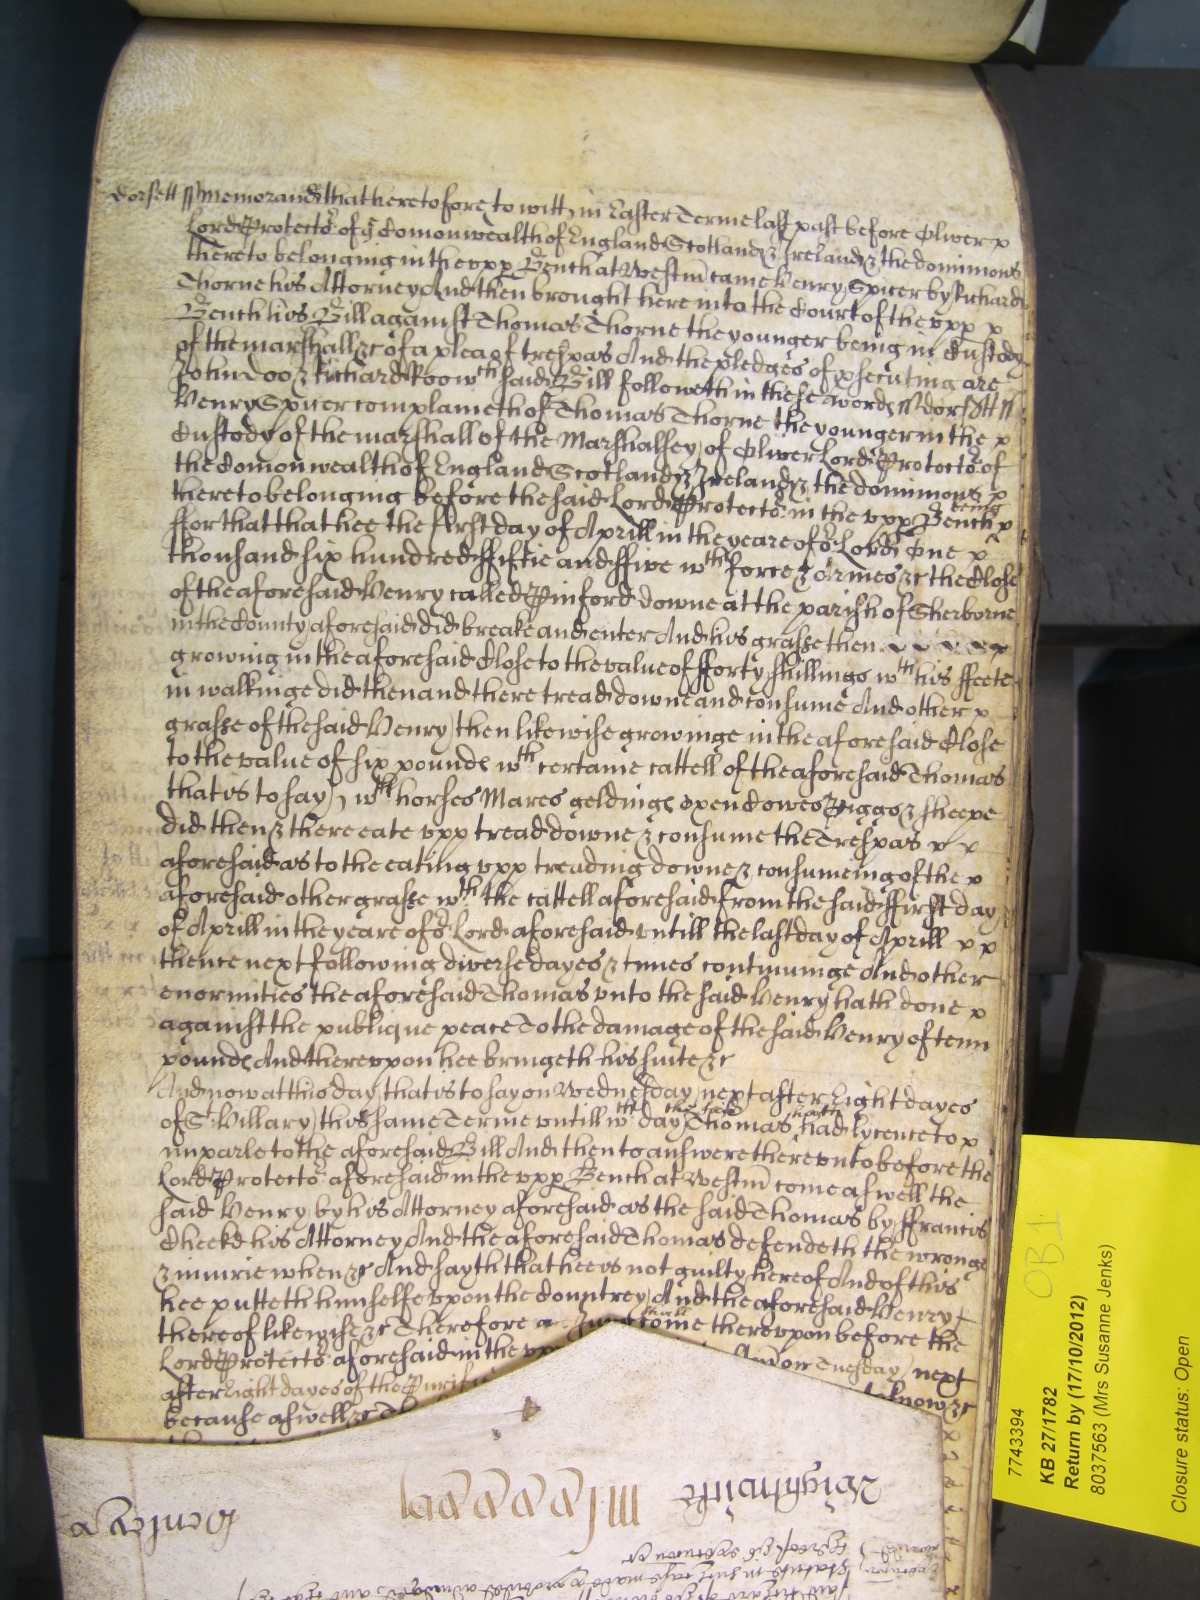 dorsett ss Memorand that heretofore to witt in Easter Terme last past before Oliver
Lord Protector of ye Comonwealth of England Scotland & Ireland & the dominions
thereto belonging in the vpp Bench at Westm came Henry Spicer by Richard
Thorne his Attorney And then brought here into the Court of the vpp
Bench his Bill against Thomas Thorne the younger being in Custody
of the marshall &c of a plea of trespas And the pledges of psecuting are
John Doo & Richard Roo wch said Bill followeth in these words ss dorsett ss
Henry Spicer complaineth of Thomas Thorne the younger in the
Custody of the marshall of the Marshalsey of Oliver Lord Protector of
the Comonwealth of England Scotland & Ireland & the dominions
thereto belonging before the said Lord Protector in the vpp Bench being
ffor that that hee the first day of Aprill in the yeare of or Lord One
thousand six hundred ffiftie and ffive wth force & armes &c the Close
of the aforesaid Henry called Pinford downe at the parish of Sherborne
in the County aforesaid did breake and enter And his grasse then
growing in the aforesaid Close to the value of fforty shillings wth his ffeete
in walkinge did then and there tread downe and consume And other
grasse of the said Henry then likewise growinge in the aforesaid Close
to the value of six pounds wth certaine cattell of the aforesaid Thomas
that is to say wth horses Mares geldings oxen Cowes Piggs & sheepe
did then & there eate vpp tread downe & consume the Trespas
aforesaid as to the eating vpp treading downe & consumeing of the
aforesaid other grasse wth the cattell aforesaid from the said ffirst day
of Aprill in the yeare of or Lord aforesaid vntill the last day of Aprill
thence next following diverse dayes & times continuinge And other
enormities the aforesaid Thomas vnto the said Henry hath done
against the publique peace To the damage of the said Henry of tenn
pounds And therevpon hee bringeth his suite &c
And now at this day that is to say on Wednesday next after Eight dayes
of St Hillary this same Terme vntill wch day the said Thomas hath had lycence to
imparle to the aforesaid Bill And then to answere therevnto before the
Lord Protector aforesaid in the vpp Bench at Westm come aswell the
said Henry by his Attorney aforesaid as the said Thomas by ffrancis
Cheeke his Attorney And the aforesaid Thomas defendeth the wronge
& iniurie when &c And sayth that hee is not guilty hereof And of this
hee putteth himselfe vpon the Countrey And the aforesaid Henry
thereof likewise &c Therefore a Jury shall come therevpon before the
Lord Protector aforesaid in the vpp on Tuesday next
after Eight dayes of the Purif
because aswell &c know &c
7743394
KB 27/1782
Return by (17/10/2012)
8037563 (Mrs Susanne Jenks)
Closure status: Open
OB 1